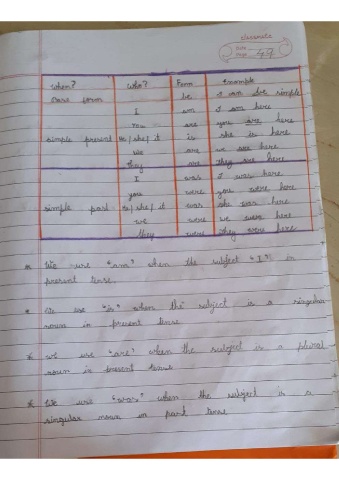 classmate
Date
Page 49
when? who? Form Example
Base form be I am simple
I am I am here
You are you are here
simple present he/she/it is she is here
we are we are here
they are they are here
I was I was here
you were you were here
simple past he/she/it was she was here
we were we were here
they were they were here
* We use "am" when the subject "I" in
present tense.
* We use "is" when the subject is a singular
noun in present tense
* we use "are" when the subject is a plural
noun in present tense
* We use "was" when the subject is a
singular noun in past tense